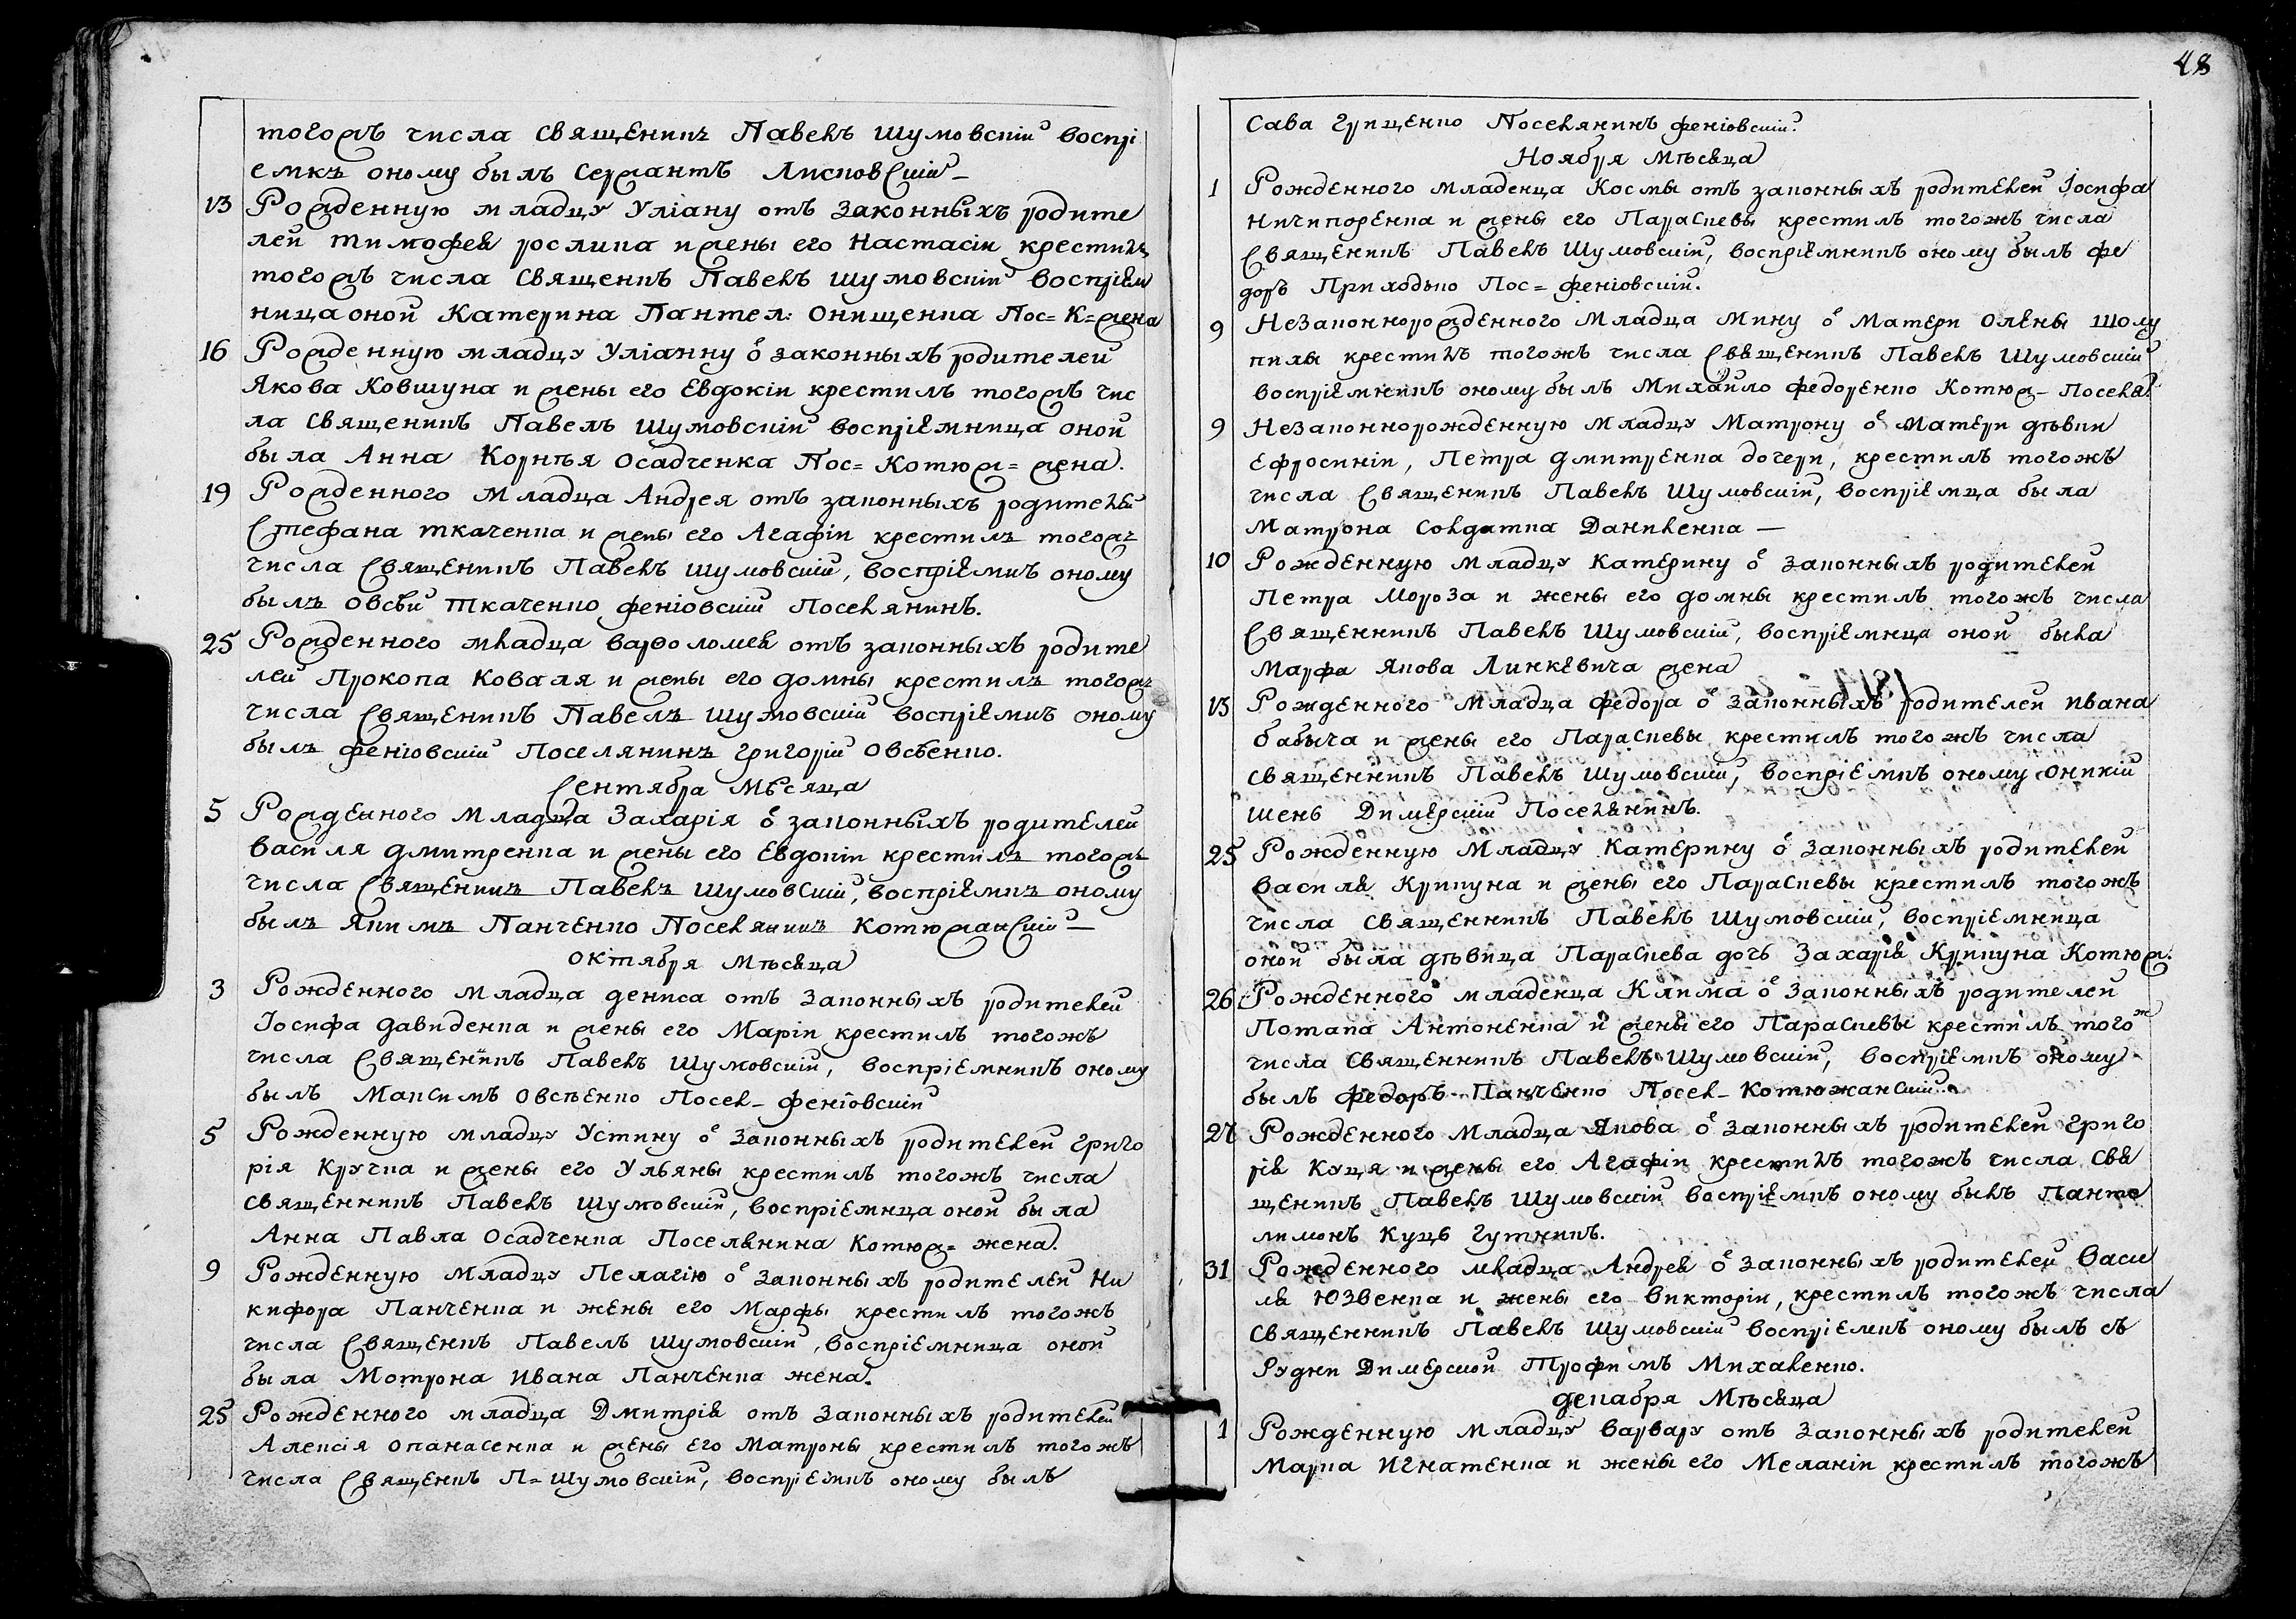 тогожъ числа священикъ Павелъ Шумовскій воспрі
емкъ оному былъ Сержантъ Лисковскій –
13 Рожденную младцу Уліану отъ законныхъ родите
лей Тимофея рослика и жены его Настасіи крестилъ
тогожъ числа священикъ Павелъ Шумовскій воспріем
ница оной Катерина Пантел: Онищенка Пос= К= жена
16 Рожденную младцу Уліанну о законныхъ родителей
Якова Ковшуна и жены его Евдокіи крестилъ тогожъ чис
ла священикъ Павелъ Шумовскій воспріемница оной
была Анна Корнѣя Осадченка Пос= Котюж= жена.
19 Рожденного младца Андрея отъ законныхъ родителей
Стефана ткаченка и жены его Агафіи крестилъ тогожъ
числа священикъ Павелъ Шумовскій, воспріемикъ оному
былъ Овсѣй Ткаченко феніовскій Поселянинъ.
25 Рожденного младца варѳоломея отъ законныхъ родите
лей Прокопа Коваля и жены его домны крестилъ тогожъ
числа священикъ Павелъ Шумовскій воспріемикъ оному
былъ феніовскій Поселянинъ григорій Овсѣенко.
Сентября Мѣсяца
5 Рожденного младца Захарія о законныхъ родителей
василя дмитренка и жены его Евдокіи крестилъ тогожъ
числа священикъ Павелъ Шумовскій, воспріемикъ оному
былъ Якимъ Панченко Поселянинъ Котюжанскій –
октября Мѣсяца
3 Рожденного младца дениса отъ законныхъ родителей
Іосифа давиденка и жены его Маріи крестилъ тогожъ
числа священикъ Павелъ Шумовскій, воспріемникъ оному
былъ Максимъ Овсѣенко Посел– феніовскій
5 Рожденную младцу Устину о законныхъ родителей григо
рія Кручка и жены его Ульяны крестилъ тогожъ числа
священникъ Павелъ Шумовскій, воспріемица оной была
Анна Павла Осадченка Поселянина Котюж= жена.
9 Рожденную младцу Пелагію о законныхъ родителей Ни
кифора Панченка и жены его Марфы крестилъ тогожъ
числа священикъ Павелъ Шумовскій, воспріемница оной
была Мотрона Ивана Панченка жена.
25 Рожденного младца Дмитрія отъ законныхъ родителей
Алексія опанасенка и жены его Матроны крестилъ тогожъ
числа священикъ П= Шумовскій, воспріемикъ оному былъ
48
Сава грищенко Поселянинъ феніовскій.
Ноября Мѣсяца
1 Рожденного младенца Космы отъ законныхъ родителей Іосифа
Ничипоренка и жены его Параскевы крестилъ тогожъ числа
священикъ Павелъ Шумовскій, воспріемникъ оному былъ фе
доръ Приходько Пос= феніовскій.
9 Незаконнорожденного младца Мину о Матери олены Шолу
пихы крестилъ тогожъ числа священикъ Павелъ Шумовскій
воспріемникъ оному былъ Михайло федоренко Котюж– Поселя:
9 Незаконнорожденную младцу Матрону о Матери дѣвки
Ефросиніи, Петра дмитренка дочери, крестилъ тогожъ
числа священикъ Павелъ Шумовскій, воспріемица была
Матрона солдатка Даниленка –
10 Рожденную младцу Катерину о законныхъ родителей
Петра Мороза и жены его домны крестилъ тогожъ числа
священникъ Павелъ Шумовскій, воспріемница оной была
Марфа Якова Линкевича жена
13 Рожденного младца федора о законныхъ родителей ивана
бабыча и жены его Параскевы крестилъ тогожъ числа
священникъ Павелъ Шумовскій, воспріемикъ оному Оникій
шень Димерскій Поселянинъ.
25 Рожденную младцу Катерину о законныхъ родителей
василя Крипуна и жены его Параскевы крестилъ тогожъ
числа священникъ Павелъ Шумовскій, воспріемница
оной была дѣвица Параскева дочь Захарія Крипуна Котюж.
26 Рожденного младенца Клима о законныхъ родителей
Потапа Антоненка и жены его Параскевы крестилъ тогож
числа священникъ Павелъ Шумовскій, воспріемикъ оному
былъ федоръ Панченко Посел– Котюжанскій
27 Рожденного младца Якова о законныхъ родителей григо
рія Куця и жены его Агафіи крестилъ тогожъ числа свя
щеникъ Павелъ Шумовскій воспріемикъ оному былъ Панте
лимонъ Куць гутникъ.
31 Рожденного младца Андрея о законныхъ родителей Васи
ля Юзвенка и жены его викторіи, крестилъ тогожъ числа
священникъ Павелъ Шумовскій воспріемикъ оному былъ съ
Рудки Димерской Трофимъ Михаленко.
декабря Мѣсяца
1 Рожденную младцу варвару отъ законныхъ родителей
Марка Игнатенка и жены его Меланіи крестилъ тогожъ